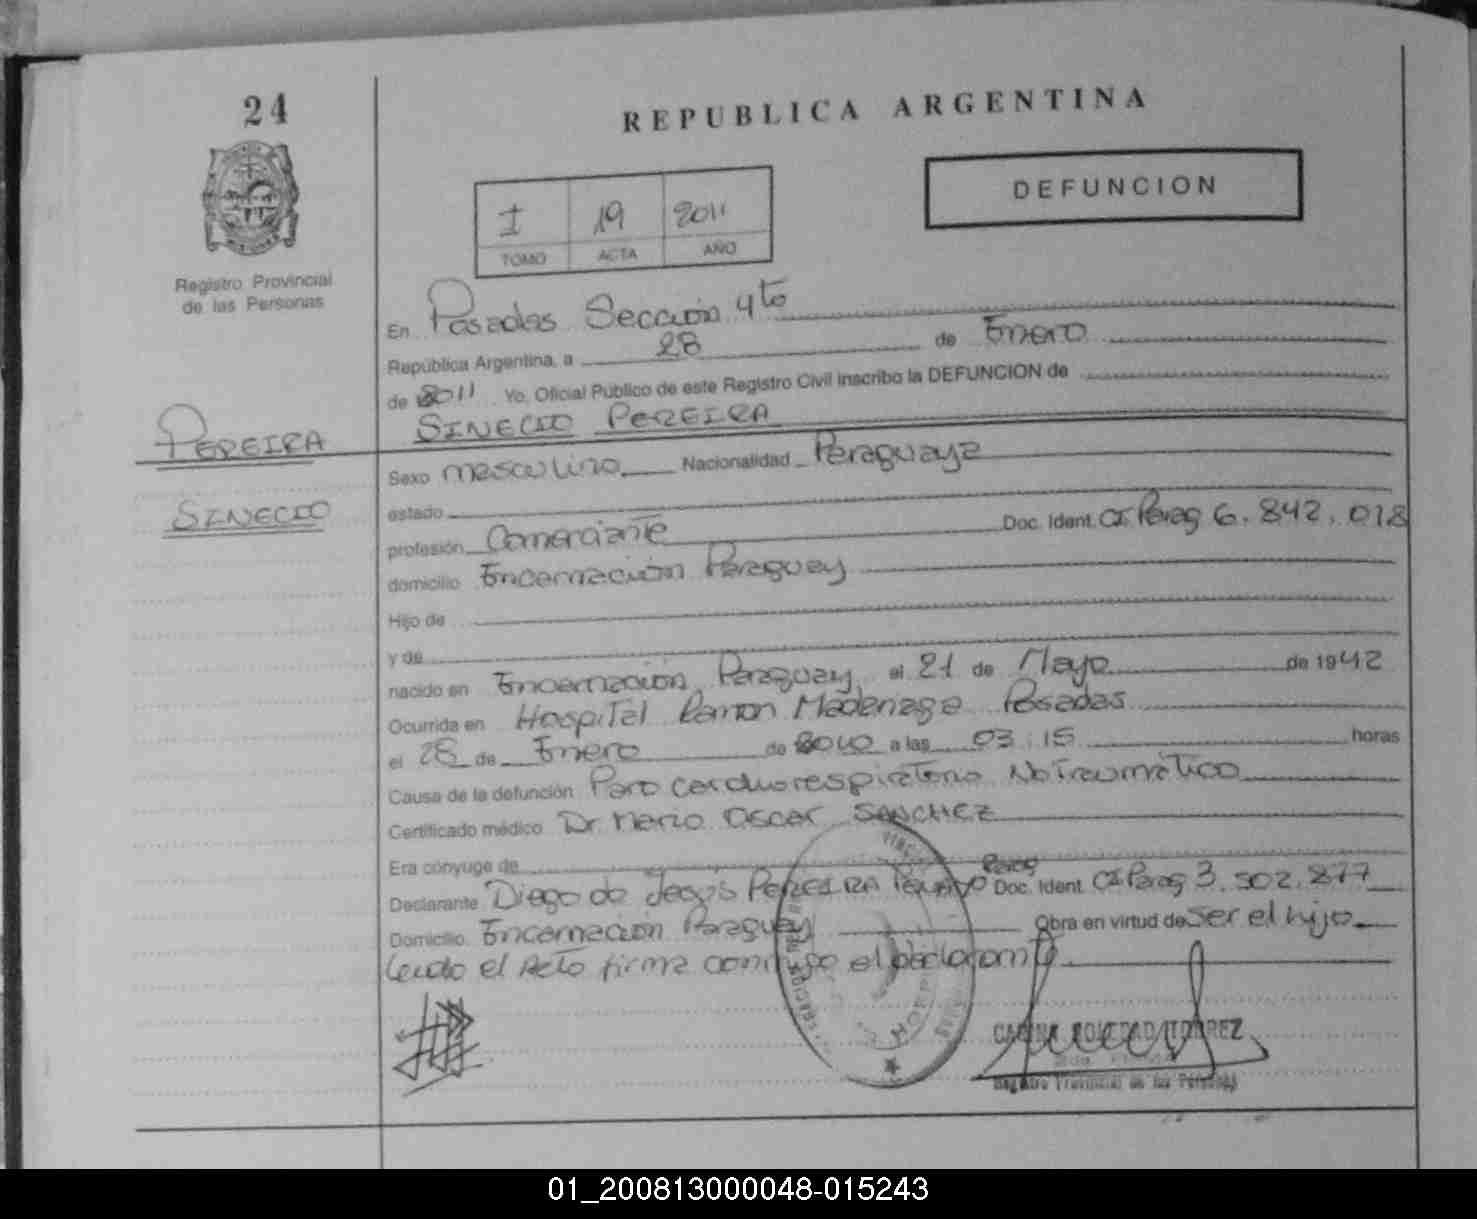 24
REPUBLICA ARGENTINA
DEFUNCION
I 19 2011
TOMO ACTA AÑO
Registro Provincial
de las Personas
En Posadas Sección 4to
República Argentina, a 28 de Enero
de 2011 Yo, Oficial Público de este Registro Civil inscribo la DEFUNCION de
PEREIRA
SINECIO PEREIRA
Sexo masculino Nacionalidad Paraguaya
SINECIO
estado
profesión Comerciante Doc. Ident. CI Parag 6.842.018
domicilio Encarnación Paraguay
Hijo de
y de
nacido en Encarnación Paraguay el 21 de Mayo de 1942
Ocurrida en Hospital Ramon Madariaga Posadas
el 28 de Enero de a las 03:15 horas
Causa de la defunción Paro cardiorespiratorio No Traumático
Certificado médico Dr Mario Oscar SANCHEZ
Era cónyuge de
Parag
Declarante Diego de Jesús PEREIRA Doc. Ident. CI Parag 3.502.877
Domicilio Encarnación Paraguay Obra en virtud de ser el hijo
Leido el Acto firma conmigo el Declarante
Registro Provincial de las Personas
01_200813000048-015243